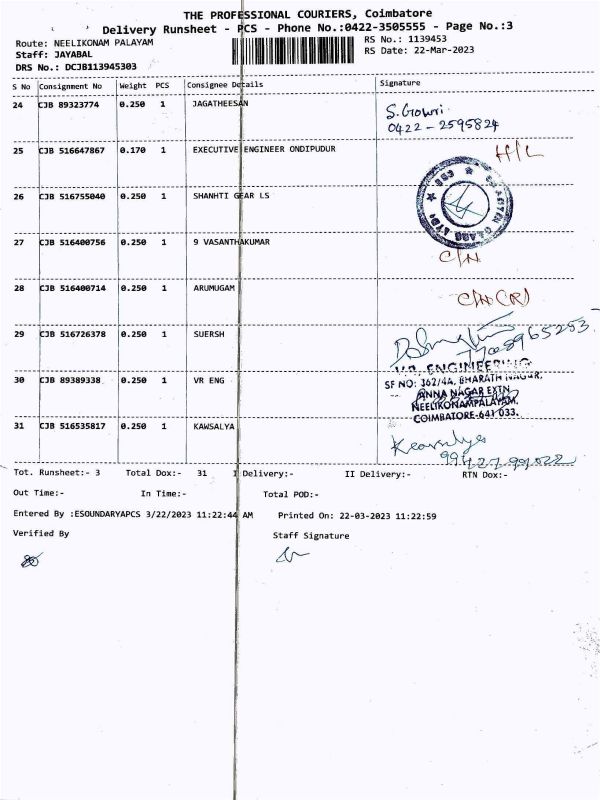 THE PROFESSIONAL COURIERS, Coimbatore
Delivery Runsheet - PCS - Phone No.:0422-3505555 - Page No.:3
Route: NEELIKONAM PALAYAM RS No.: 1139453
Staff: JAYABAL RS Date: 22-Mar-2023
DRS No.: DCJB113945303
S No Consignment No Weight PCS Consignee Details Signature
24 CJB 89323774 0.250 1 JAGATHEESAN S. Gowri
0422 - 2595824
25 CJB 516647867 0.170 1 EXECUTIVE ENGINEER ONDIPUDUR H/L
26 CJB 516755040 0.250 1 SHANHTI GEAR LS
27 CJB 516400756 0.250 1 9 VASANTHAKUMAR C/N
28 CJB 516400714 0.250 1 ARUMUGAM C/N (R)
29 CJB 516726378 0.250 1 SUERSH
V.R. ENGINEERING
30 CJB 89389338 0.250 1 VR ENG SF NO: 362/4A, BHARATH NAGAR,
ANNA NAGAR EXTN,
NEELIKONAMPALAYAM,
COIMBATORE-641 033.
31 CJB 516535817 0.250 1 KAWSALYA
Tot. Runsheet:- 3 Total Dox:- 31 I Delivery:- II Delivery:- RTN Dox:-
Out Time:- In Time:- Total POD:-
Entered By :ESOUNDARYAPCS 3/22/2023 11:22:44 AM Printed On: 22-03-2023 11:22:59
Verified By Staff Signature